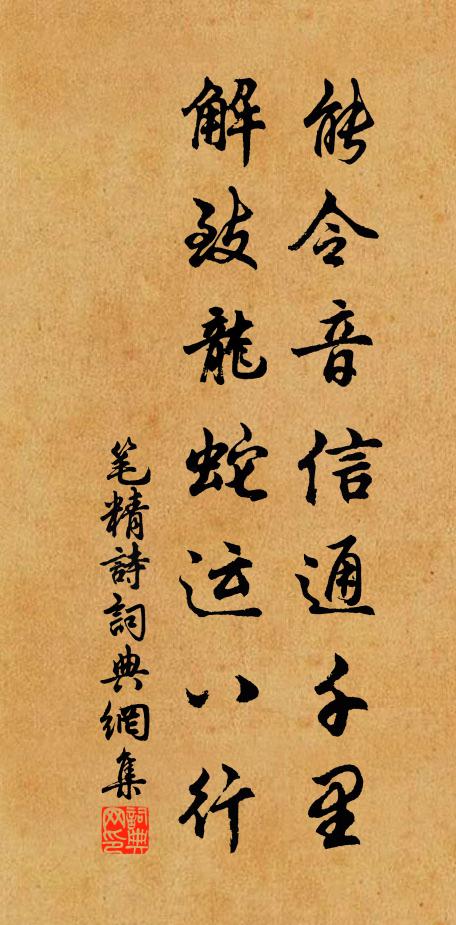 能令音信通千里
解致龍蛇运八行
笔精詩詞典網集
詞典网印